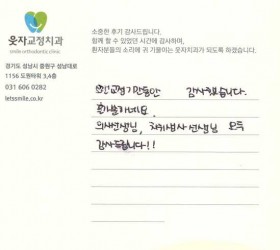 웃자교정치과
smile orthodontic clinic
경기도 성남시 중원구 성남대로
1156 도원타워 3,4층
031 606 0282
letssmile.co.kr
소중한 후기 감사드립니다.
함께 할 수 있었던 시간에 감사하며,
환자분들의 소리에 귀 기울이는 웃자치과가 되도록 하겠습니다.
교정기간동안 감사했습니다.
의사선생님, 치위생사 선생님 모두
감사드립니다!!